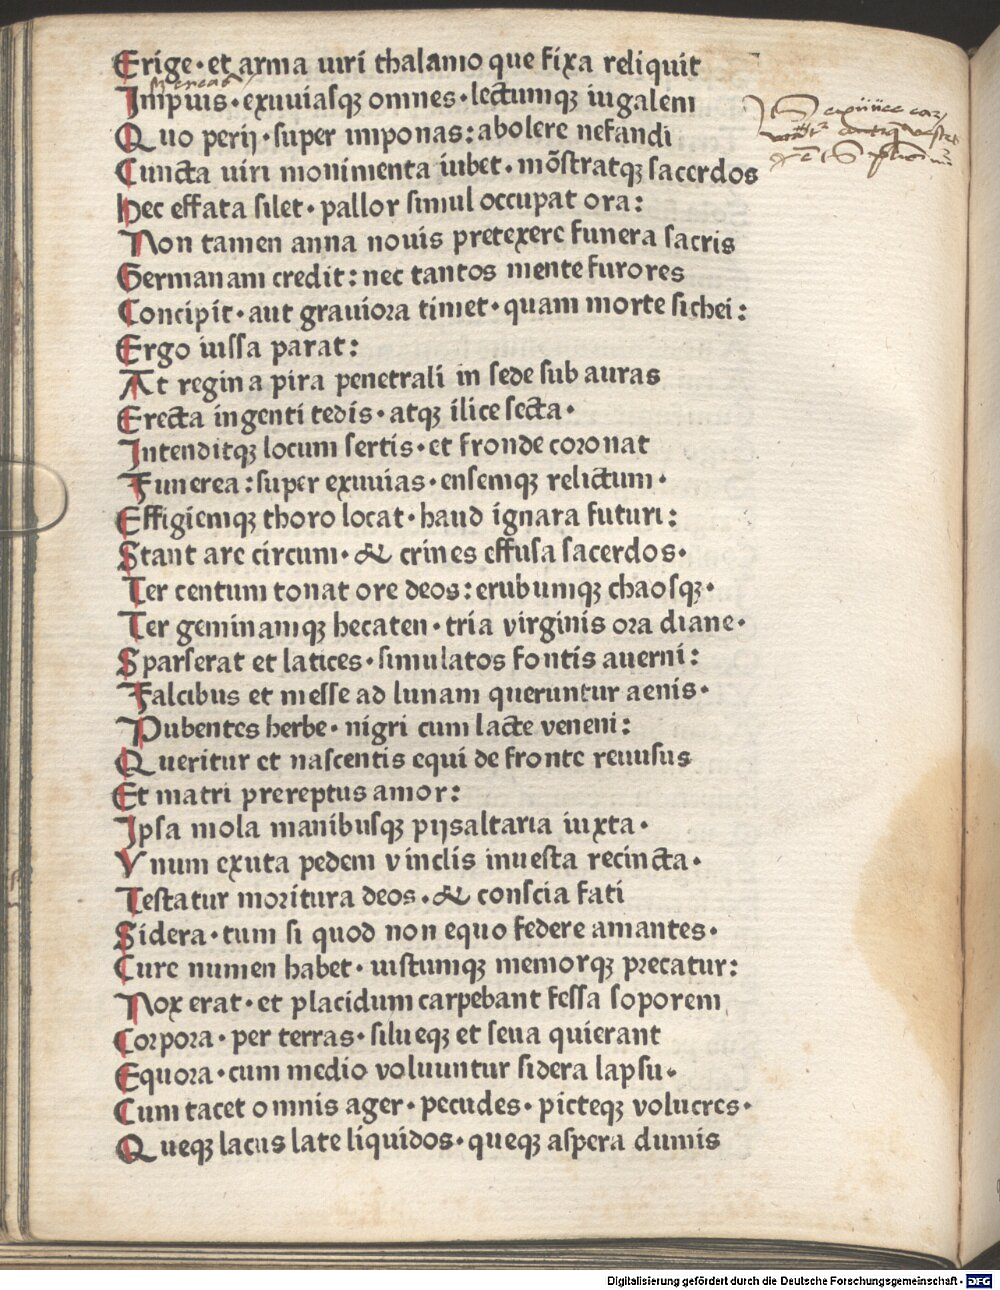 Erige·et arma uiri thalamo que fixa reliquit
Impuis·exuuiasqꝫ omnes·lectumqꝫ iugalem
Quo perij·super imponas:abolere nefandi
Cuncta uiri monimenta iubet·mōstratqꝫ sacerdos
Hec effata silet·pallor simul occupat ora:
Non tamen anna nouis pretexere funera sacris
Germanam credit:nec tantos mente furores
Concipit·aut grauiora timet·quam morte sichei:
Ergo iussa parat:
At regina pira penetrali in sede sub auras
Erecta ingenti tedis·atqꝫ ilice secta·
Intenditqꝫ locum sertis·et fronde coronat
Funerea:super exuuias·ensemqꝫ relictum·
Effigiemqꝫ thoro locat·haud ignara futuri:
Stant are circum·& crines effusa sacerdos·
Ter centum tonat ore deos:erubumqꝫ chaosqꝫ·
Ter geminamqꝫ hecaten·tria virginis ora diane·
Sparserat et latices·simulatos fontis auerni:
Falcibus et messe ad lunam queruntur aenis·
Pubentes herbe·nigri cum lacte veneni:
Queritur et nascentis equi de fronte reuusus
Et matri prereptus amor:
Ipsa mola manibusqꝫ pijsaltaria iuxta·
Vnum exuta pedem vinclis inuesta recincta·
Testatur moritura deos·& conscia fati
Sidera·tum si quod non equo federe amantes·
Cure numen habet·uistumqꝫ memorqꝫ precatur:
Nox erat·et placidum carpebant fessa soporem
Corpora·per terras·silueqꝫ et seua quierant
Equora·cum medio voluuntur sidera lapsu·
Cum tacet omnis ager·pecudes·picteqꝫ volucres·
Queqꝫ lacus late liquidos·queqꝫ aspera dumis
Digitalisierung gefördert durch die Deutsche Forschungsgemeinschaft - DFG